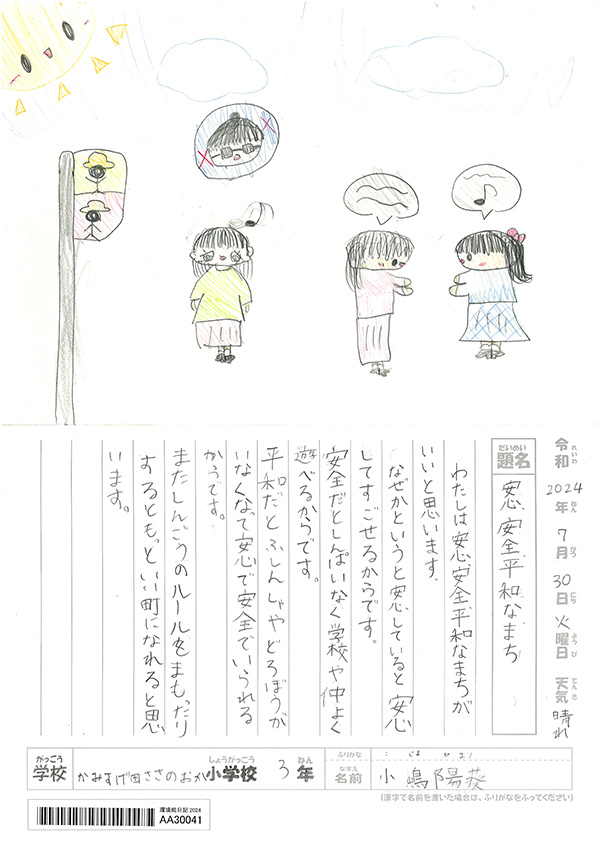 令和 2024年 7月 30日 火曜日 天気 晴れ
れいわ ねん がつ にち ようび てんき
だいめい
題名 安心安全平和なまち
わたしは安心安全平和なまちが
いいと思います。
なぜかというと安心していると安心
してすごせるからです。
安全だとしんぱいなく学校や仲よく
遊べるからです。
平和だとふしんしゃやどろぼうが
いなくなって安心で安全でいられる
からです。
またしんごうのルールをまもったり
するともっといい町になれると思
います。
がっこう しょうがっこう ねん ふりがな
学校 かみすげ田ささのおか小学校 3年
なまえ
名前 小嶋陽葵
(漢字で名前を書いた場合は、ふりがなをふってください)
環境絵日記 2024
AA30041